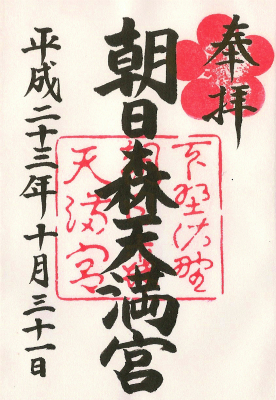 奉拝
朝日森天満宮
下野佐野
朝日森
天満宮
平成二十三年十月三十一日